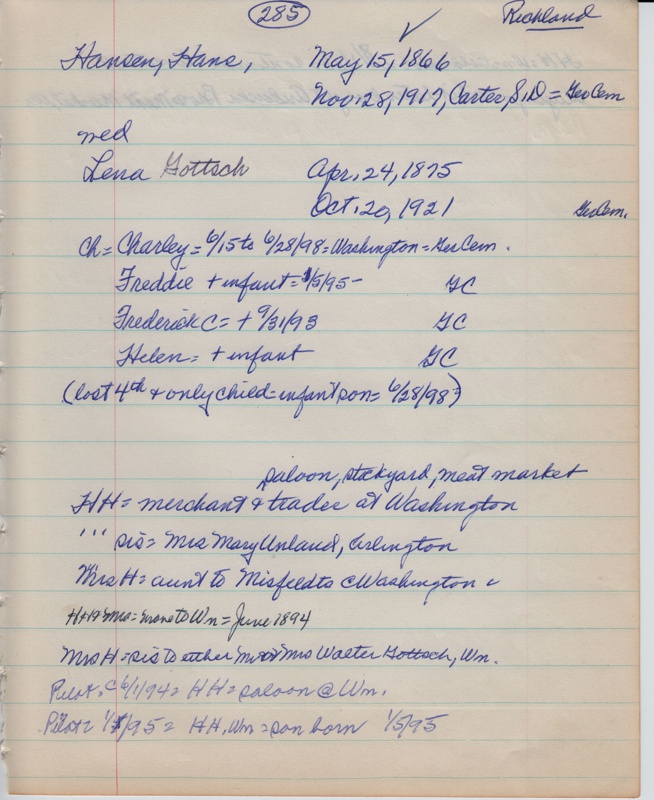 285
Richland
Hansen, Hans, May 15, 1866
Nov. 28, 1917, Carter, S.D = GerCem
med
Lena Gottsch Apr. 24, 1875
Oct. 20, 1921 GerCem.
Ch = Charley = 6/15 to 6/28/98 = Washington = GerCem.
Freddie + infant = 1/5/95 - GC
Frederick C = + 9/31/93 GC
Helen = + infant GC
(lost 4th & only child = infant son = 6/28/98)
saloon, stockyard, meat market
HH = merchant & trader at Washington
" ' sis = Mrs Mary Unland, Arlington
Mrs H = aunt to Misfeldts @ Washington
H H & Mrs = move to Wn = June 1894
Mrs H = sis to either Mr or Mrs Walter Gottsch, Wn.
Pilot = 6/1/94 = HH = saloon @ Wn.
Pilot = /95 = HH, Wn = son born 1/5/95